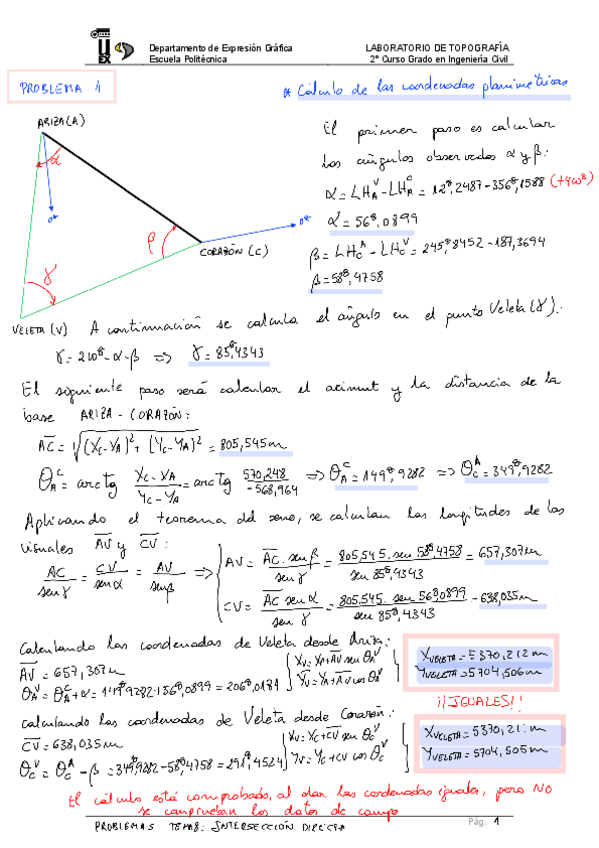 UEX
Departamento de Expresión Gráfica
Escuela Politécnica
LABORATORIO DE TOPOGRAFÍA
2º Curso Grado en Ingeniería Civil
PROBLEMA 1
* Cálculo de las coordenadas planimétricas
ARIZA (A)
α
0ᵍ
β
0ᵍ
CORAZÓN (C)
γ
VELETA (V)
El primer paso es calcular
los ángulos observados α y β:
α = LH_A^V - LH_A^C = 12ᵍ,2487 - 356ᵍ,1588 (+400ᵍ)
α = 56ᵍ,0899
β = LH_C^A - LH_C^V = 245ᵍ,8452 - 187,3694
β = 58ᵍ,4758
A continuación se calcula el ángulo en el punto Veleta (γ):
γ = 200ᵍ - α - β => γ = 85ᵍ,4343
El siguiente paso será calcular el acimut y la distancia de la
base ARIZA - CORAZÓN:
AC = √(X_C - X_A)² + (Y_C - Y_A)² = 805,545m
θ_A^C = arctg (X_C - X_A)/(Y_C - Y_A) = arctg 570,248/-568,964 => θ_A^C = 149ᵍ,9282 => θ_C^A = 349ᵍ,9282
Aplicando el teorema del seno, se calculan las longitudes de las
visuales AV y CV:
AC/sen γ = CV/sen α = AV/sen β => { AV = AC · sen β/sen γ = 805,545 · sen 58ᵍ,4758/sen 85ᵍ,4343 = 657,307m
CV = AC sen α/sen γ = 805,545 · sen 56,0899/sen 85ᵍ,4343 = 638,035m
Calculando las coordenadas de Veleta desde Ariza:
AV = 657,307m
θ_A^V = θ_A^C + α = 149,9282 + 56ᵍ,0899 = 206ᵍ,0181
{ X_V = X_A + AV sen θ_A^V
Y_V = Y_A + AV cos θ_A^V }
X_VELETA = 5370,212m
Y_VELETA = 5704,506m
¡¡IGUALES!!
Calculando las coordenadas de Veleta desde Corazón:
CV = 638,035m
θ_C^V = θ_C^A - β = 349,9282 - 58ᵍ,4758 = 291ᵍ,4524
{ X_V = X_C + CV sen θ_C^V
Y_V = Y_C + CV cos θ_C^V }
X_VELETA = 5370,21 m
Y_VELETA = 5704,505m
El cálculo está comprobado, al dar las coordenadas iguales, pero NO
se comprueban los datos de campo
PROBLEMAS TEMA 8: INTERSECCIÓN DIRECTA
Pág. 1